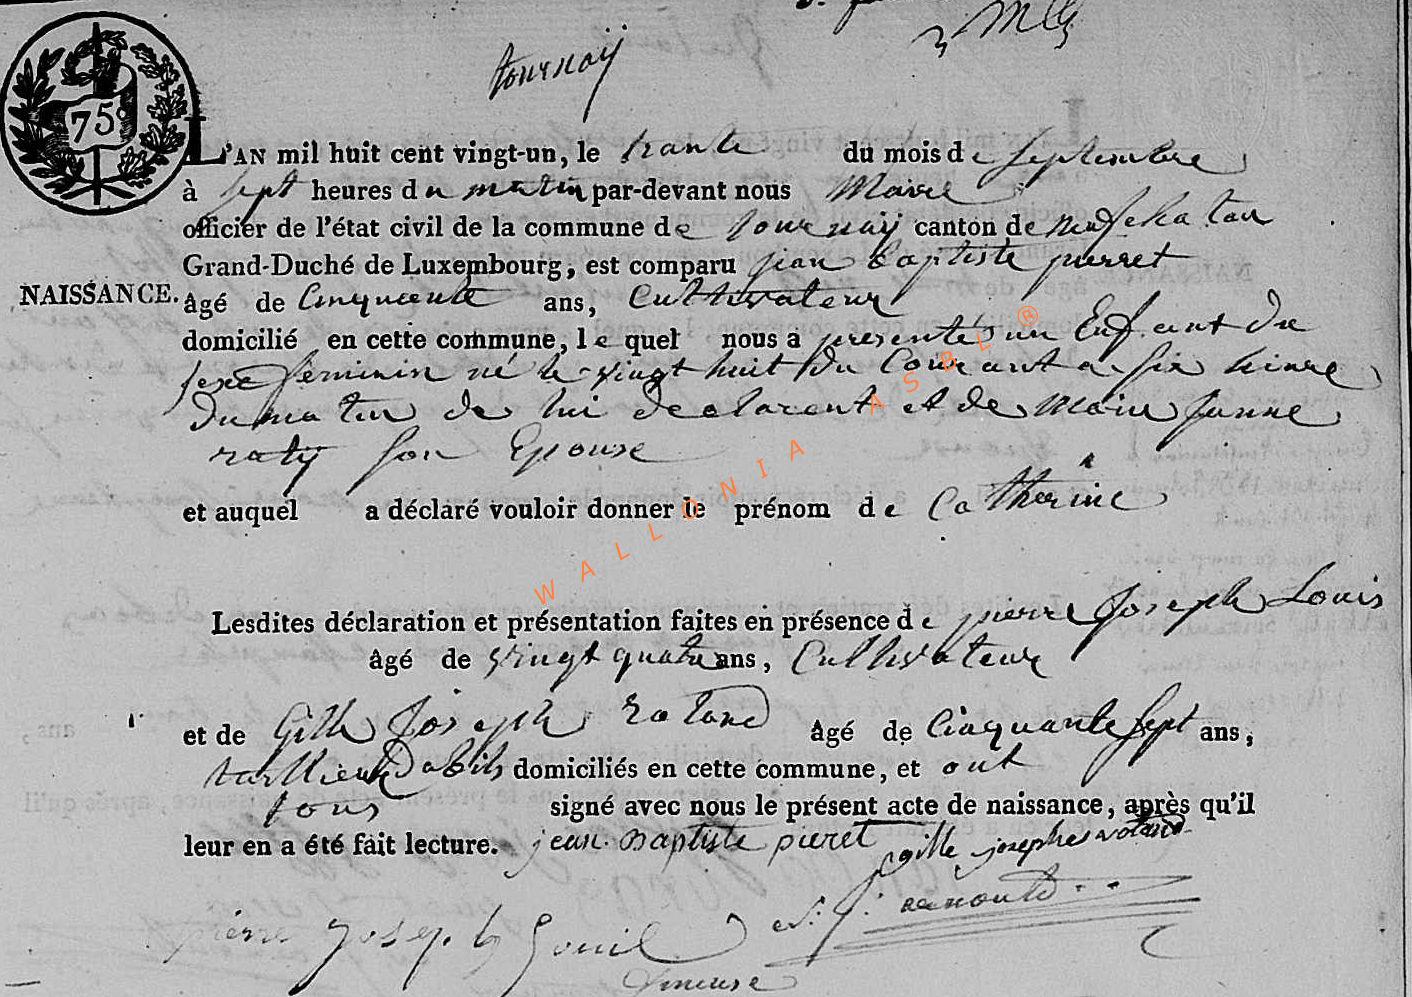 tournay
75c
L'AN mil huit cent vingt-un, le trante du mois de septembre
à sept heures du matin par-devant nous Maire
officier de l'état civil de la commune de tournay canton de neufchatau
Grand-Duché de Luxembourg, est comparu jean baptiste pierret
NAISSANCE.
âgé de Cinquante ans, Cultivateur
domicilié en cette commune, le quel nous a presenté un Enfant du
sexe féminin né le vingt huit du Courant a six heure
du matin de lui declarent et de Marie Janne
raty son Epouse
et auquel a déclaré vouloir donner le prénom de Catherine
Lesdites déclaration et présentation faites en présence de pierre Joseph Louis
âgé de vingt quatre ans, Cultivateur
et de Gille Joseph rotand âgé de Cinquante sept ans,
taillieur dabits domiciliés en cette commune, et ont
tous signé avec nous le présent acte de naissance, après qu'il
leur en a été fait lecture. jean Baptiste pieret gille joseph rotand
pierre Joseph
WALLONIA ASBL ®